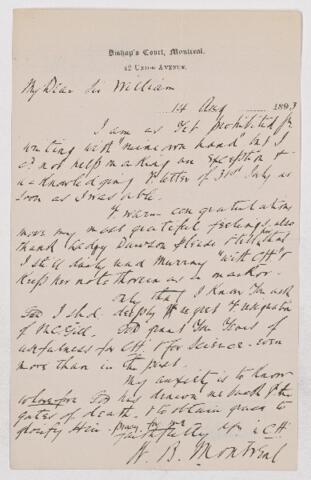 Bishop's Court, Montreal.
42 Union Avenue.
My Dear Sir William
14 Aug 1893
I am as yet prohibited fr
writing with "mine own hand" but I
cd not help making an exception &
acknowledging Yr letter of 31st July as
soon as I was able.
Yr warm congratulations
move my most grateful feelings, also
thank Lady Dawson please & tell her that
I still daily read Murray "with Ch"
keep her note therein as a marker.
only that I know You ask
God I shd deeply regret Yr resignation
of McGill. God grant You Years of
usefulness for Ch & for Science even
more than in the past.
My anxiety is to know
wherefore God has drawn me back fr the
gates of death & to obtain grace to
glorify Him. pray for me
faithfully Yrs in Ch
W. B. Montreal